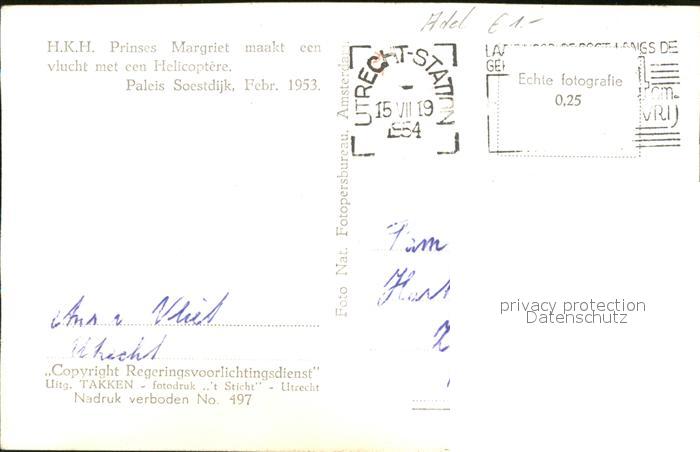 Adel € 1.-
H.K.H. Prinses Margriet maakt een
vlucht met een Helicoptère.
Paleis Soestdijk, Febr. 1953.
UTRECHT-STATION
15 VII 19
1954
Echte fotografie
0,25
Foto Nat. Fotopersbureau, Amsterdam.
Fam
privacy protection
Datenschutz
Ann v Vliet
Utrecht
„Copyright Regeringsvoorlichtingsdienst"
Uitg. TAKKEN - fotodruk „'t Sticht" - Utrecht
Nadruk verboden No. 497